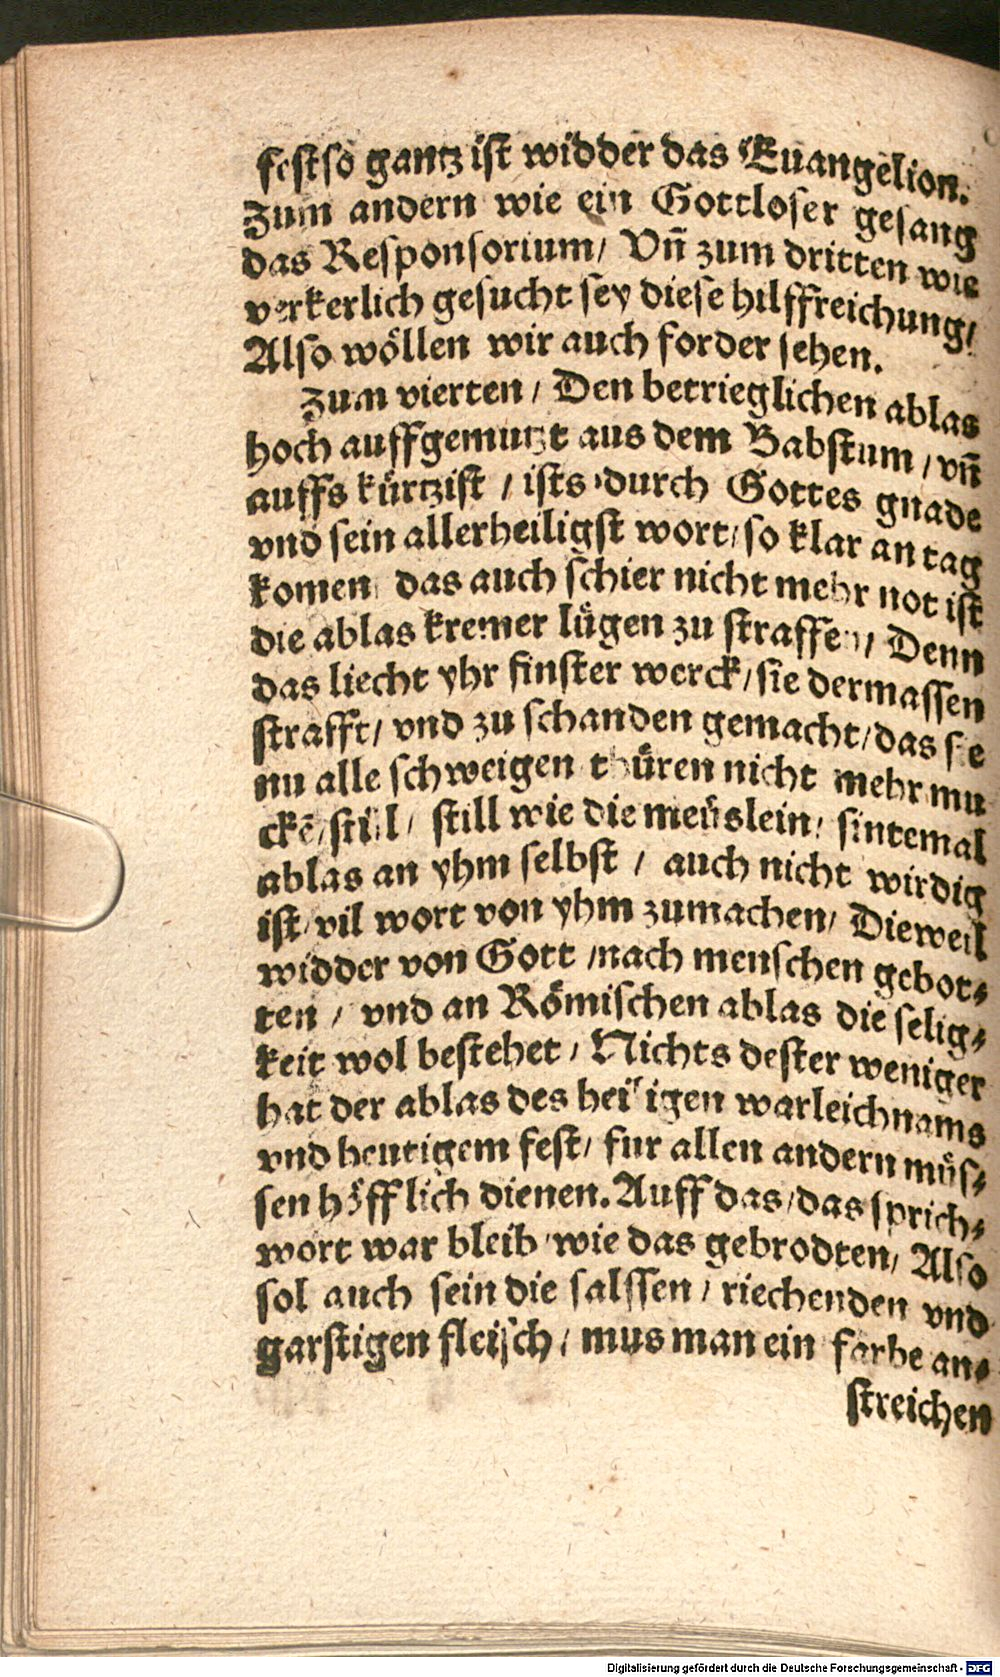 fest so gantz ist widder das Euangelion.
Zum andern wie ein Gottloser gesang
das Responsorium / Vñ zum dritten wie
verkerlich gesucht sey diese hilffreichung /
Also wöllen wir auch forder sehen.
Zum vierten / Den betrieglichen ablas
hoch auffgemutzt aus dem Babstum / vñ
auffs kürtzist / ists durch Gottes gnade
vnd sein allerheiligst wort / so klar an tag
komen das auch schier nicht mehr not ist
die ablas kremer lügen zu straffen / Denn
das liecht yhr finster werck / sie dermassen
strafft / vnd zu schanden gemacht / das sie
nu alle schweigen thüren nicht mehr mu
ckẽ / stil / still wie die meüslein / sintemal
ablas an yhm selbst / auch nicht wirdig
ist / vil wort von yhm zumachen / Dieweil
widder von Gott / nach menschen gebot⸗
ten / vnd an Römischen ablas die selig⸗
keit wol bestehet / Nichts dester weniger
hat der ablas des heiligen warleichnams
vnd heutigem fest / fur allen andern müs⸗
sen höfflich dienen. Auff das / das sprich⸗
wort war bleib wie das gebrodten / Also
sol auch sein die salssen / riechenden vnd
garstigen fleisch / mus man ein farbe an⸗
streichen
Digitalisierung gefördert durch die Deutsche Forschungsgemeinschaft - DFG